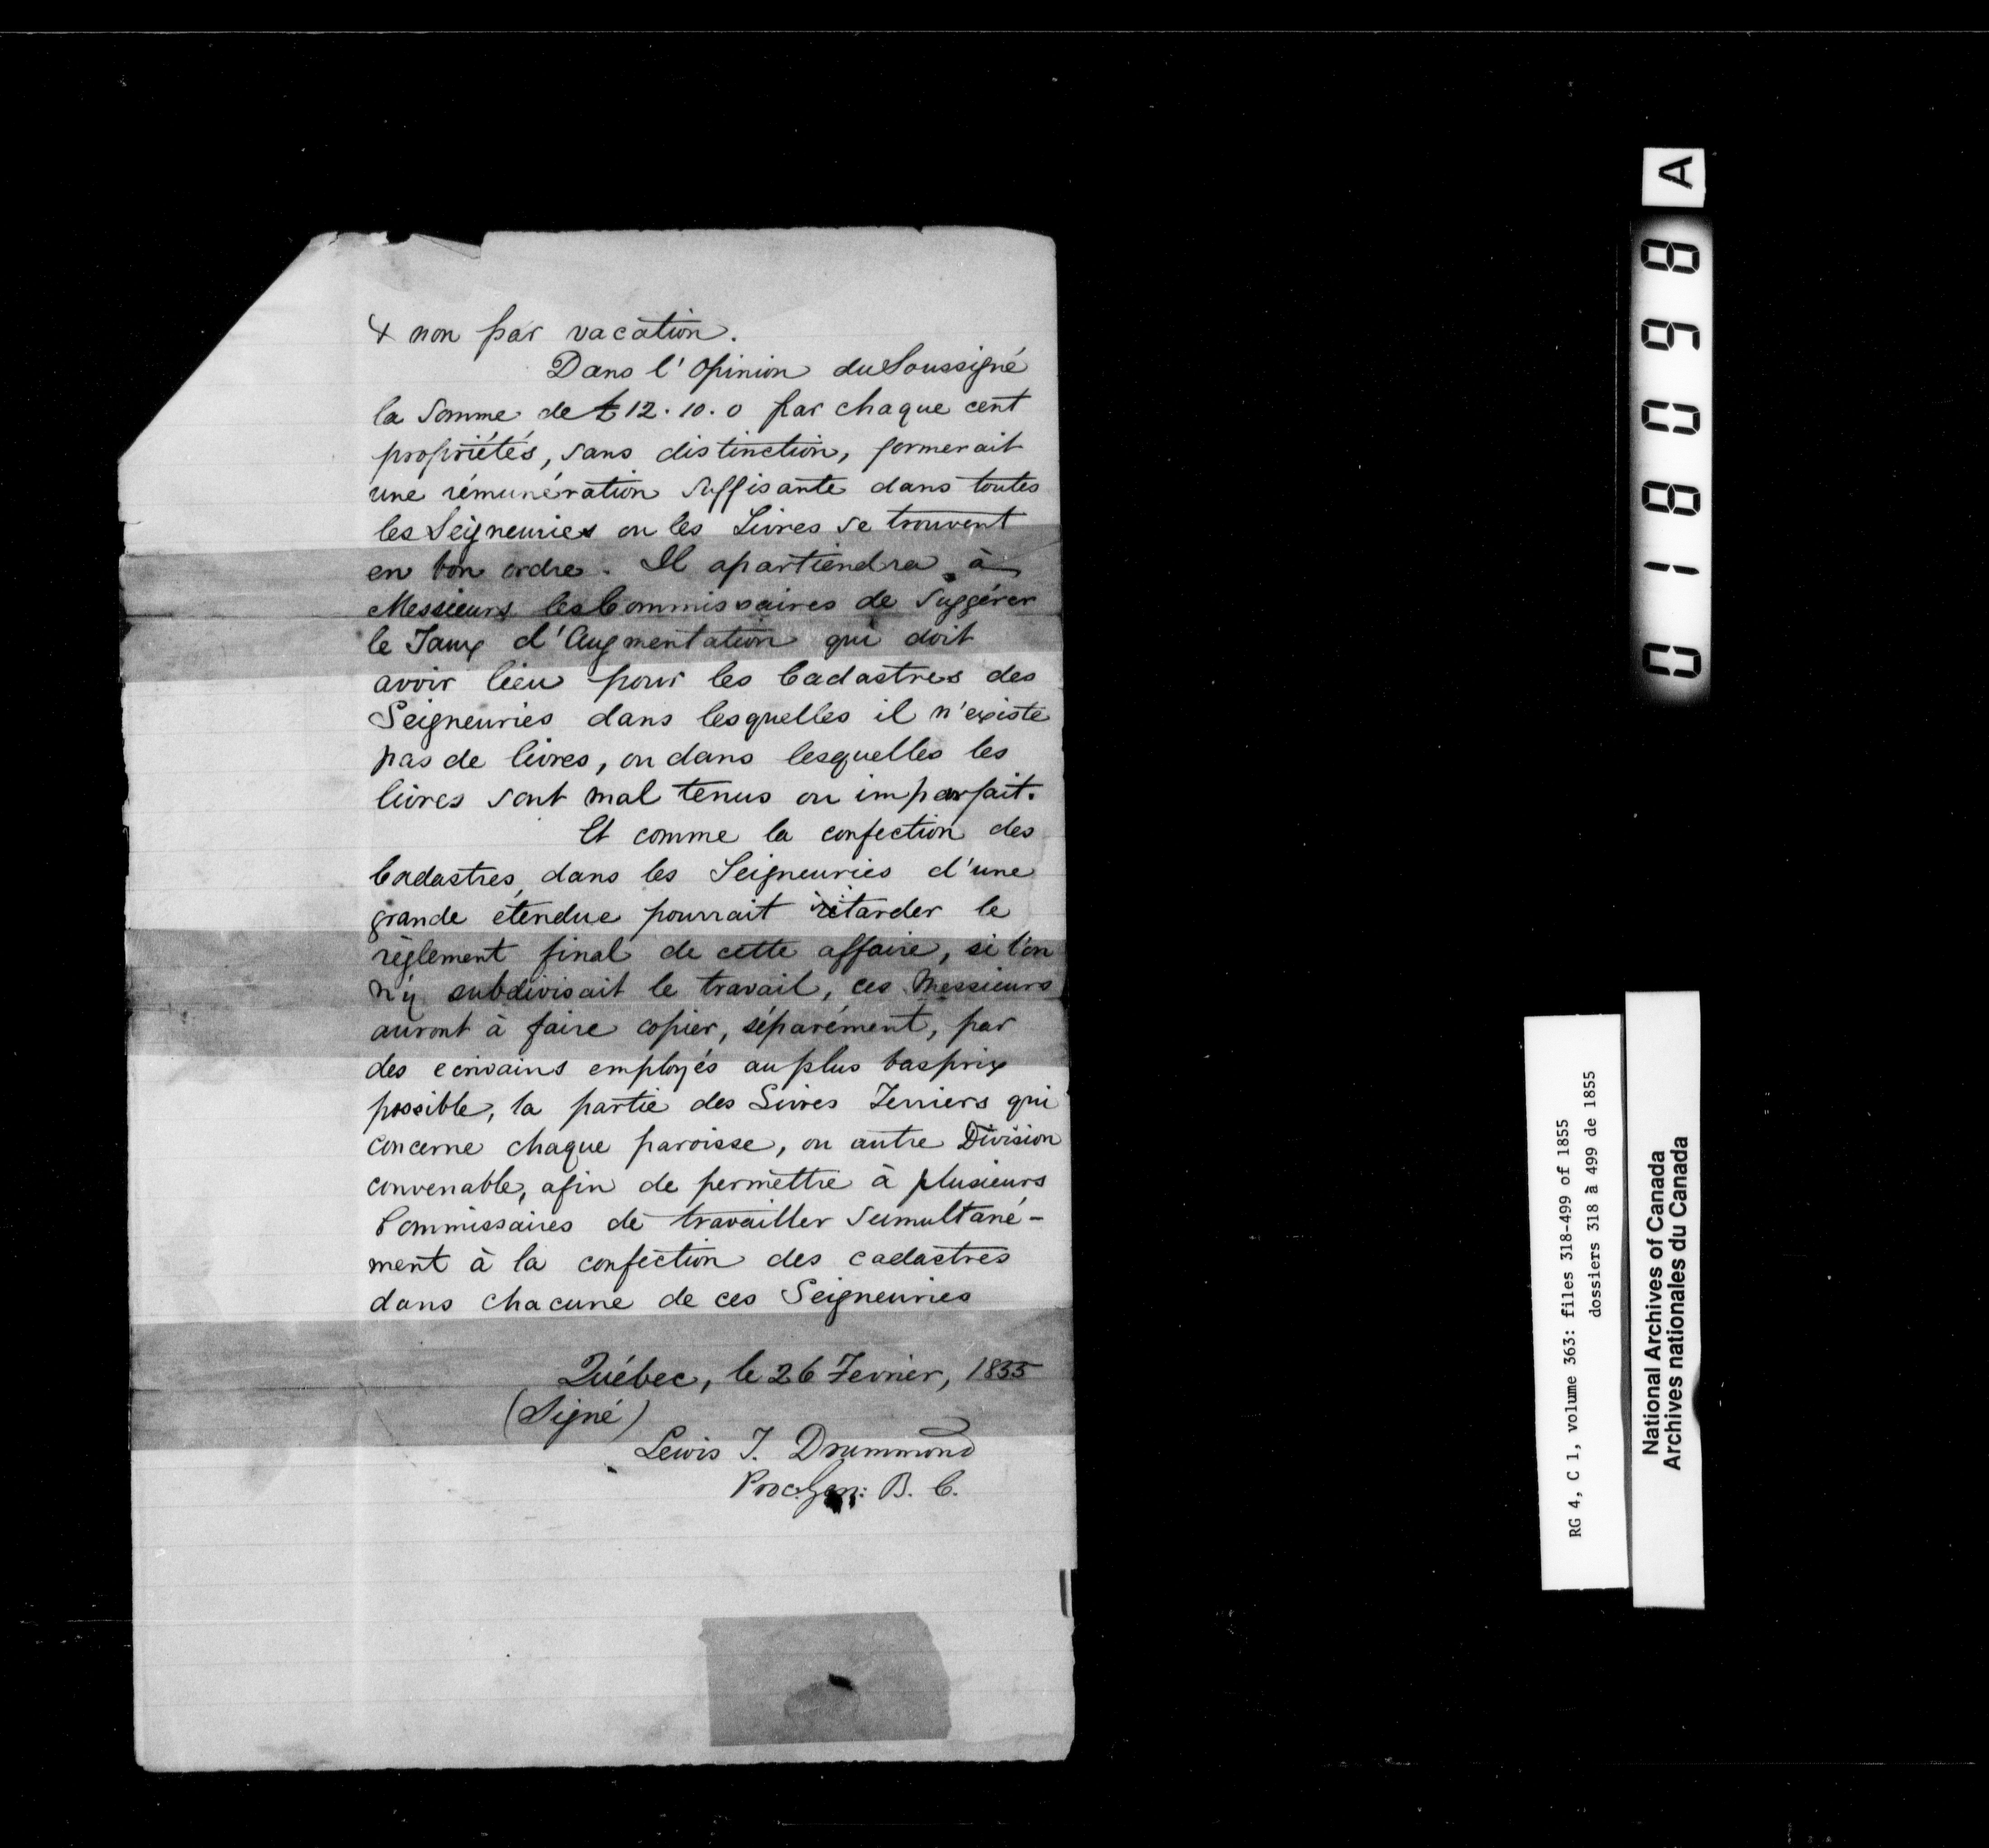 & non par vacation.
Dans l'Opinion du Soussigné
la Somme de £12.10.0 par chaque cent
propriétés, sans distinction, formerait
une rémunération suffisante dans toutes
les Seigneuries ou les Livres se trouvent
en bon ordre. Il apartiendra à
Messieurs les Commissaires de Suggérer
le Taux d'Augmentation qui doit
avoir lieu pour les Cadastres des
Seigneuries dans lesquelles il n'existe
pas de livres, ou dans lesquelles les
livres sont mal tenus ou imparfait.
Et comme la confection des
Cadastres, dans les Seigneuries d'une
grande étendue pourrait retarder le
règlement final de cette affaire, si l'on
n'y subdivisait le travail, ces Messieurs
auront à faire copier, séparément, par
des ecrivains employés au plus bas prix
possible, la partie des Livres Terriers qui
concerne chaque paroisse, ou autre Division
convenable, afin de permettre à plusieurs
Commissaires de travailler Sumultané-
ment à la confection des cadastres
dans chacune de ces Seigneuries
Québec, le 26 Fevrier, 1855
(Signé)
Lewis T. Drummond
Proc: Gen: B. C.
018098 A
RG 4, C 1, volume 363: files 318-499 of 1855
dossiers 318 à 499 de 1855
National Archives of Canada
Archives nationales du Canada